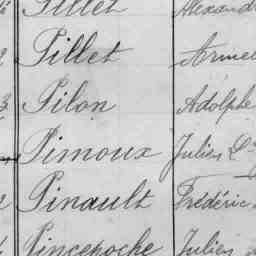 Pillet
Pillet
Pilon Adolphe
Pimoux Julien
Pinault Frédéric
Pincepoche Julien